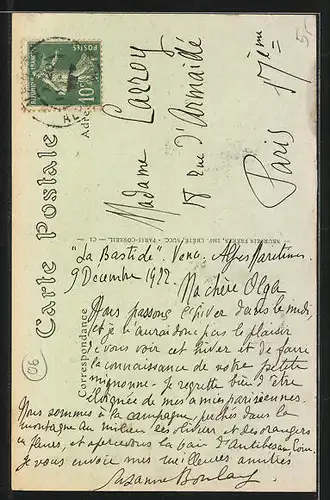 Carte Postale
Correspondance
Madame Carroy
18 rue d'Armaidé
Paris 17ème
"La Bastide". Vence. Alpes Maritimes.
9 Decembre 1922.
Ma chère Olga
Nous passons l'hiver dans le midi
et je n'aurai donc pas le plaisir
de vous voir cet hiver et de faire
la connaissance de votre petite
mignonne - Je regrette bien d'être
éloignée de mes amies parisiennes.
Nous sommes à la campagne, perchés dans la
montagne au milieu des oliviers et des orangers
en fleurs, et apercevons la baie d'Antibes au loin.
Je vous envoie mes meilleures amitiés
Suzanne
06